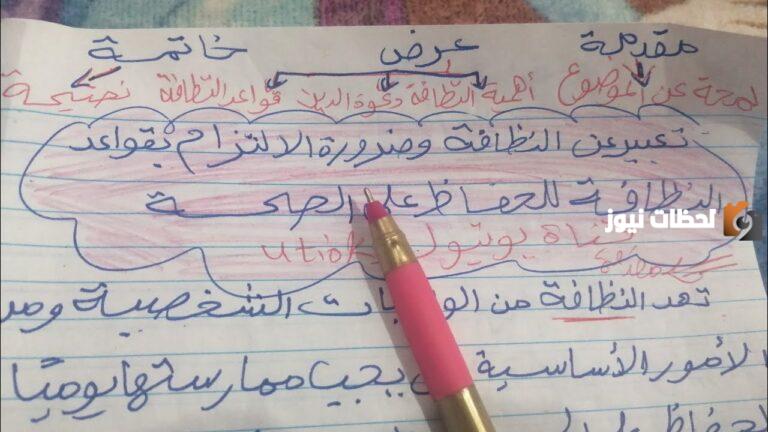 مقدمة عرض خاتمة
لمحة عن الموضوع أهمية النظافة دعوة الدين قواعد النظافة نصيحة
تعبير عن النظافة وضرورة الالتزام بقواعد
النظافة للحفاظ على الصحة
لحظات نيوز
قناة يوتيوب
تعد النظافة من الشخصية
الأمور الأساسية يجب ممارستها يوميًا